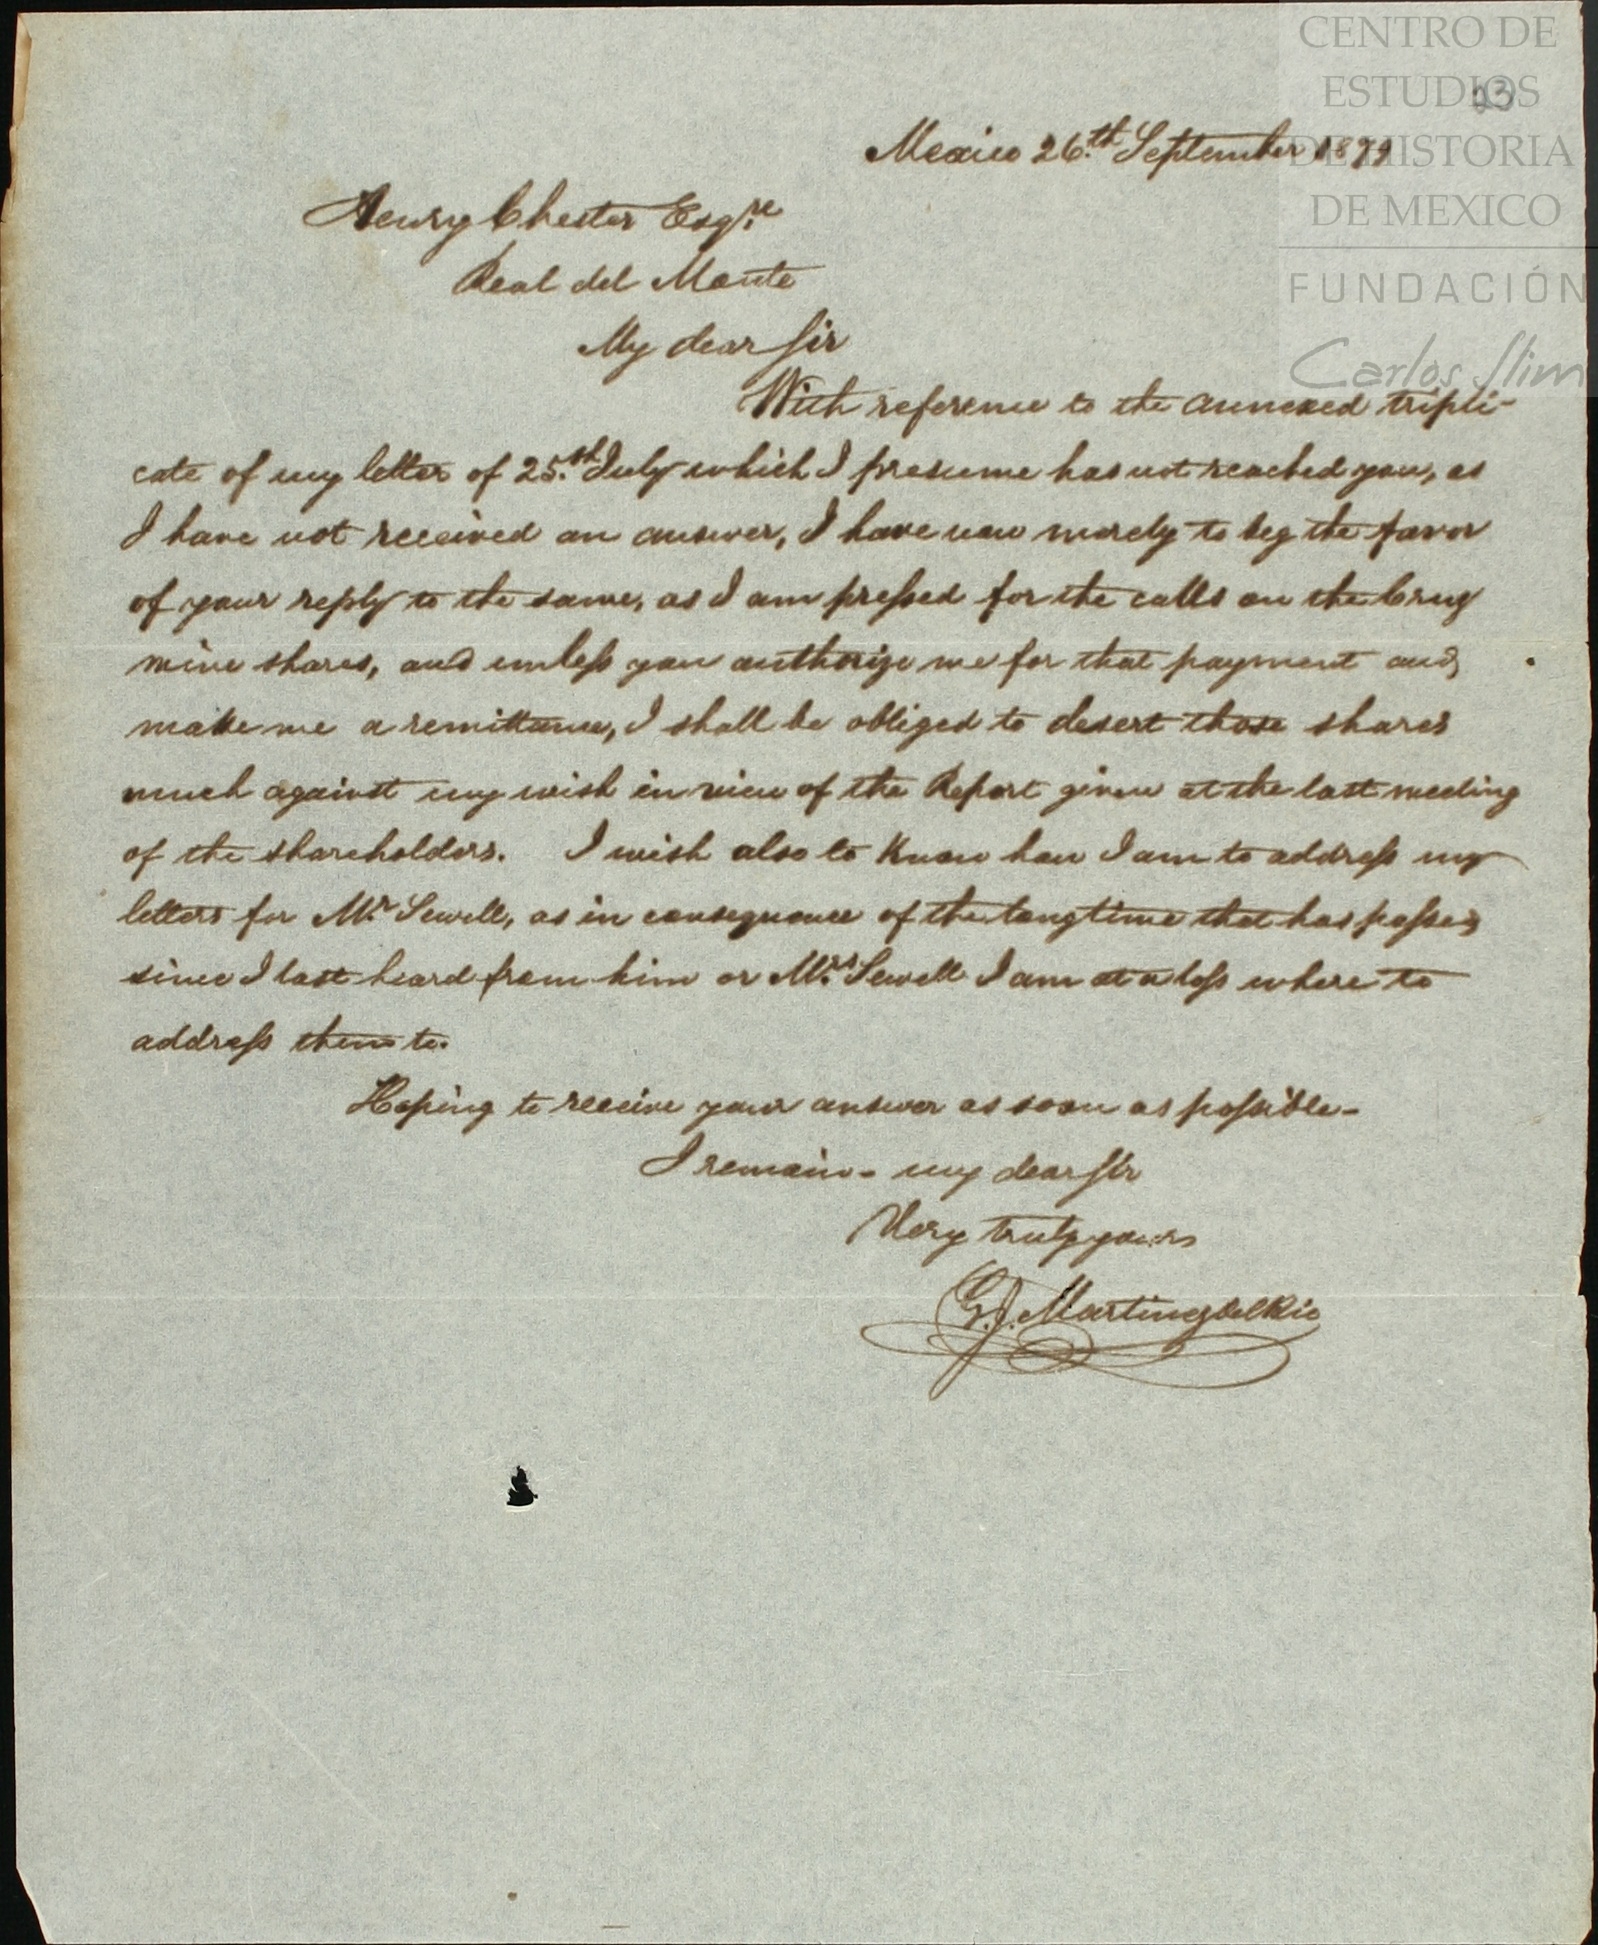 CENTRO DE
ESTUDIOS
DE HISTORIA
DE MEXICO
FUNDACIÓN
Carlos Slim
23
Mexico 26.th September 1874
Henry Chester Esqre
Real del Monte
My dear Sir
With reference to the annexed tripli-
cate of my letter of 25.th July which I presume has not reached you, as
I have not received an answer, I have now merely to beg the favor
of your reply to the same, as I am pressed for the calls on the Cruz
mine shares, and unless you authorize me for that payment and
make me a remittance, I shall be obliged to desert those shares
much against my wish in view of the Report given at the last meeting
of the shareholders. I wish also to know how I am to address my
letters for Mr. Sewell, as in consequence of the long time that has passed
since I last heard from him or Mrs. Sewell I am at a loss where to
address them to.
Hoping to receive your answer as soon as possible-
I remain- my dear Sir
Very truly yours
G.J. Martinez del Rio